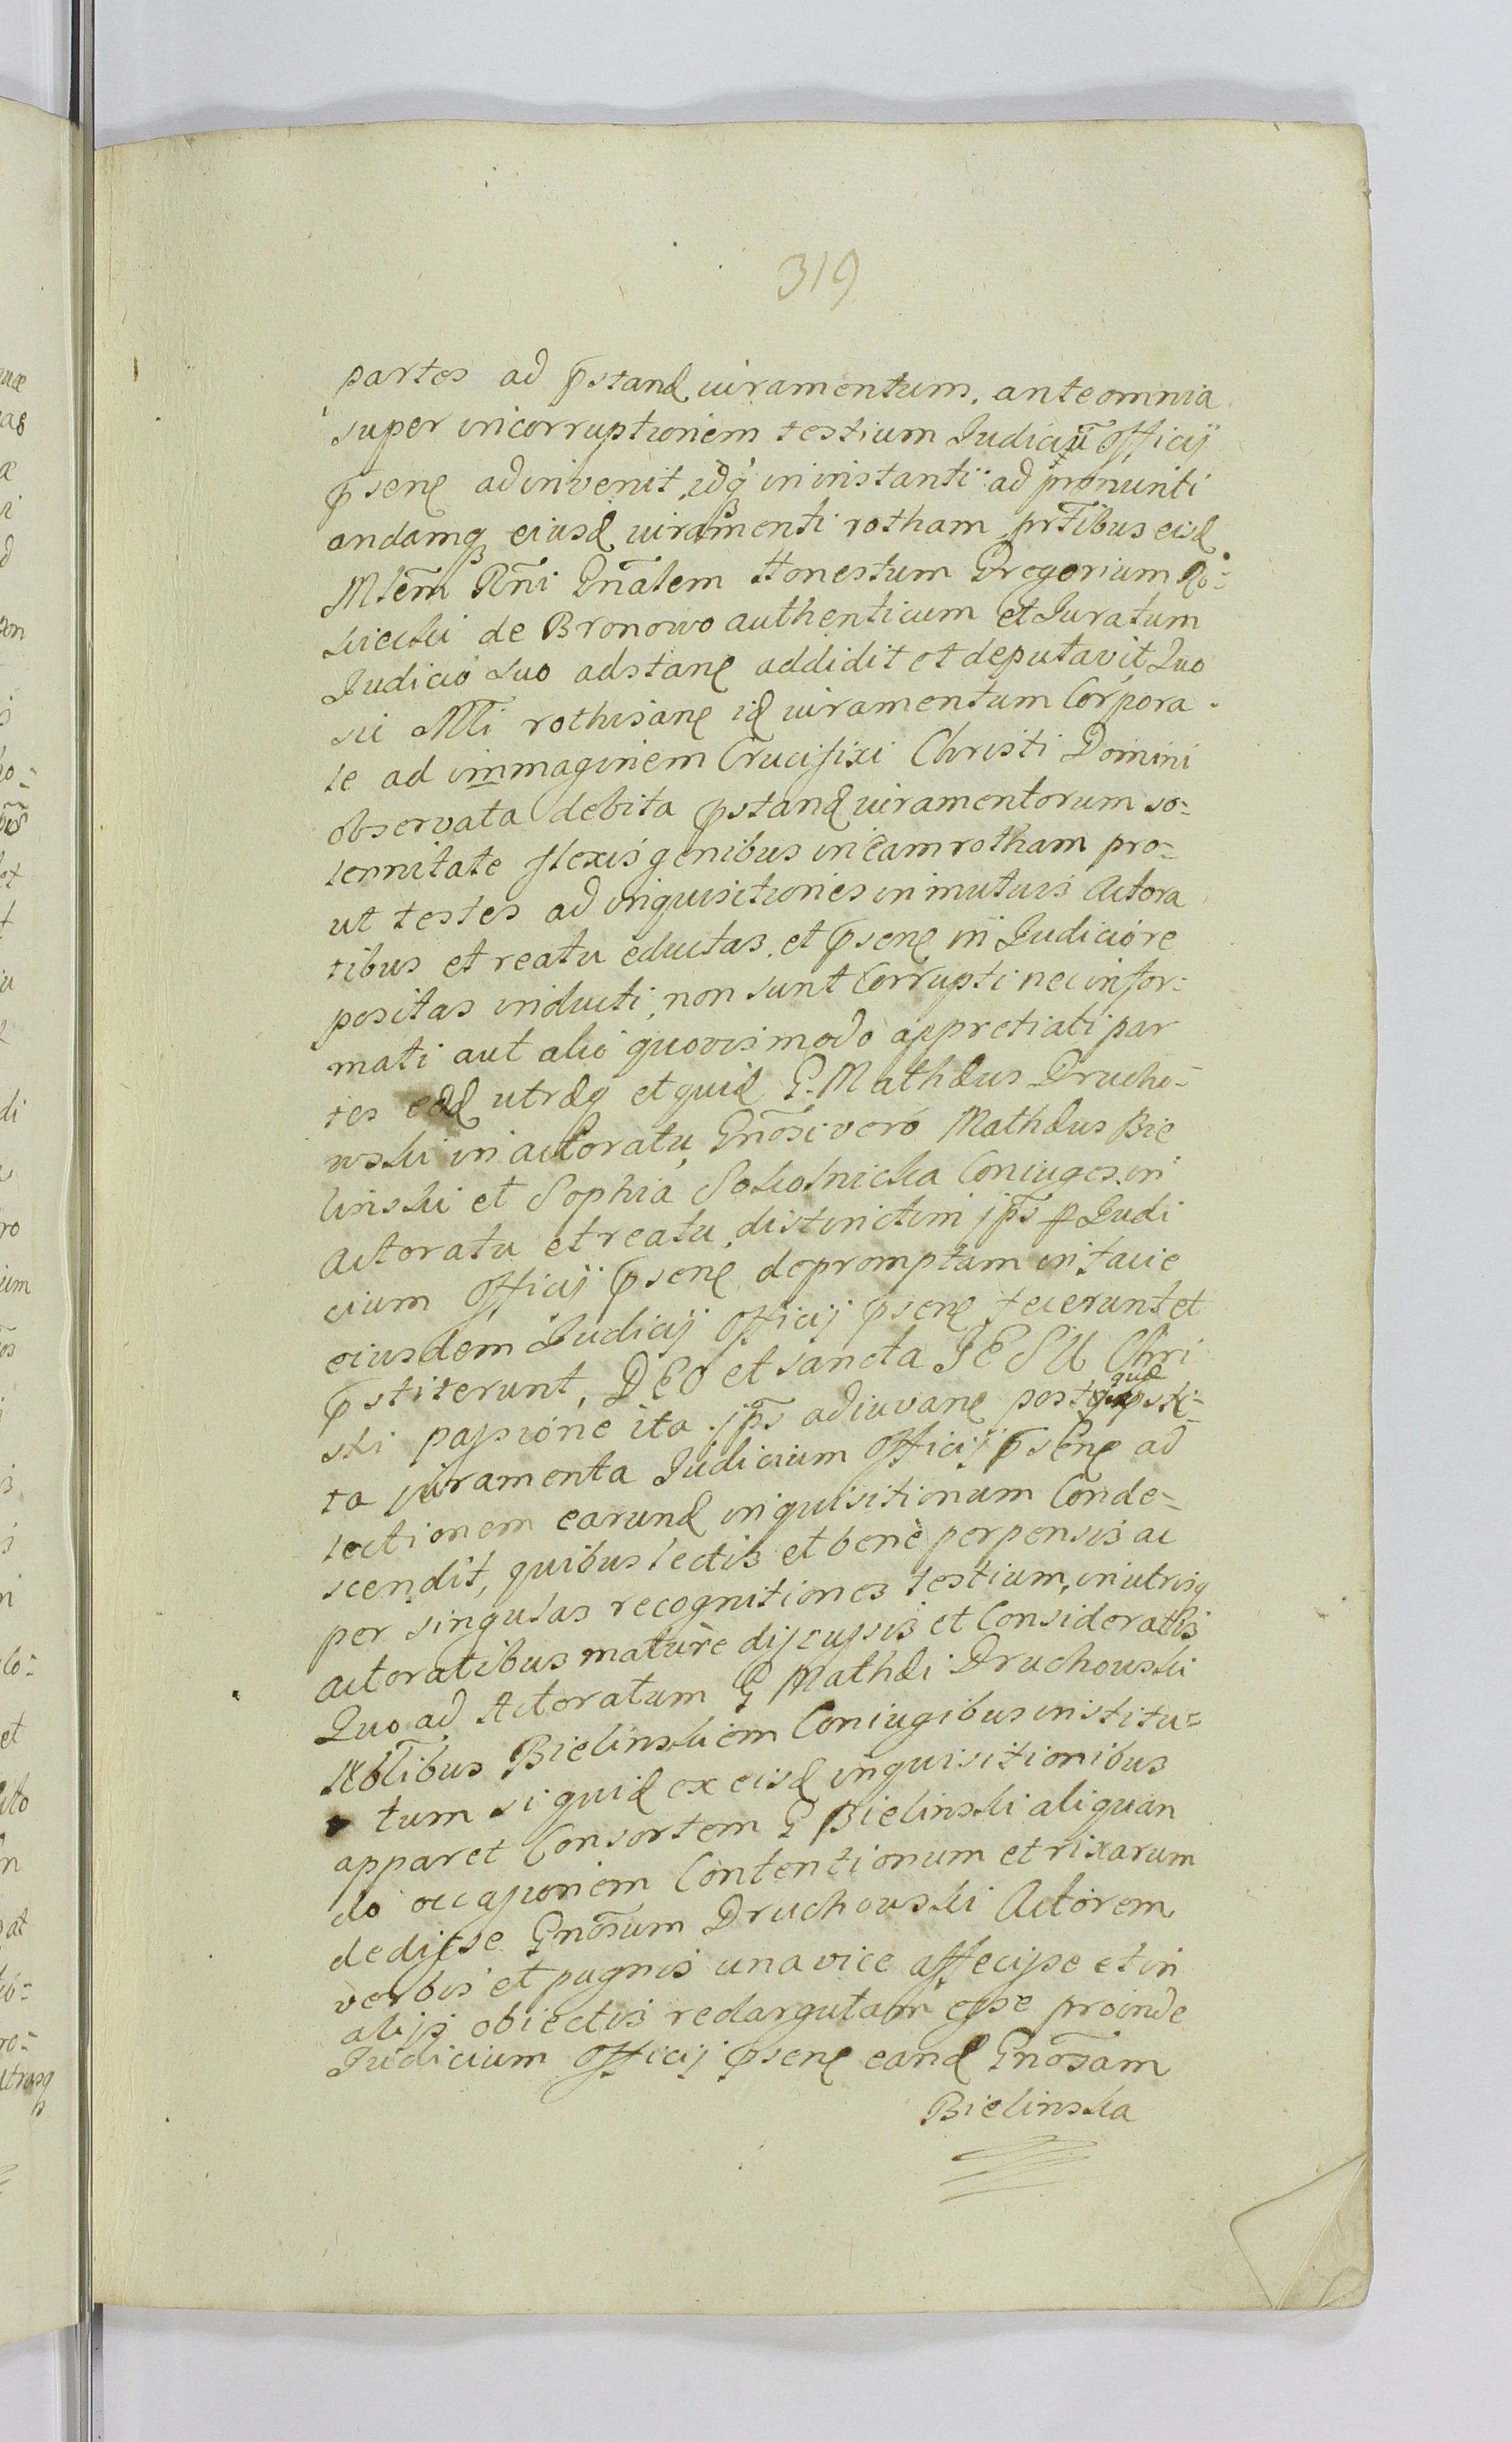 319
partes ad p̄stand iuramentum. ante omnia
super incorruptionem testium Iudiciū Officij
p̄sens adinvenit, idq in instanti ad pronunti
andamq eiusd iuramenti rotham prtibus eisd
Mlem Rni Gnalem Honestum Gregorium Ro-
siecki de Bronowo authenticum et Iuratum
Iudicio suo adstan addidit et deputavit Quo
sic Mti rothisan id iuramentum Corpora
le ad immaginem Crucifixi Christi Domini
observata debita p̄stand iuramentorum so-
lennitate flexis genibus in eam rotham pro-
ut testes ad inquisitiones in mutuis Actora
tibus et reatu eductas et p̄sen in Iudicio re
positas inducti, non sunt Corrupti nec infor-
mati aut alio quovis modo appretiati par
tes eaed utraeq et quid G. Mathæus Drucho-
wski in actoratu, Gnosi vero Mathæus Bie
linski et Sophia Sokolnicka Coniuges in
Actoratu et reatu, distinctim ips p Iudi
cium Officij p̄sen depromptam in facie
eiusdem Iudicij Officij p̄sen fecerunt et
p̄stiterunt, DEO et sancta IESU Chri
sti passione ita ips adiuvan post quae p̄sti-
ta iuramenta Iudicium Officij p̄sens ad
lectionem earund inquisitionum Conde-
scendit, quibus lectis et bene perpensis ac
per singulas recognitiones testium, in utrisq
actoratibus mature discussis et Consideratis
Quo ad Actoratum G Mathæi Druchowski
Nblibus Bielinskiem Coniugibus institu-
tum siquid ex eisd inquisitionibus
apparet Consortem G Bielinski aliquan
do occasionem Contentionum et rixarum
dedisse Gnosum Druchowski Actorem
verbis et pugnis una vice affecisse et in
alijs obiectis redargutam esse proinde
Iudicium Officij p̄sens eand Gnosam
Bielinska